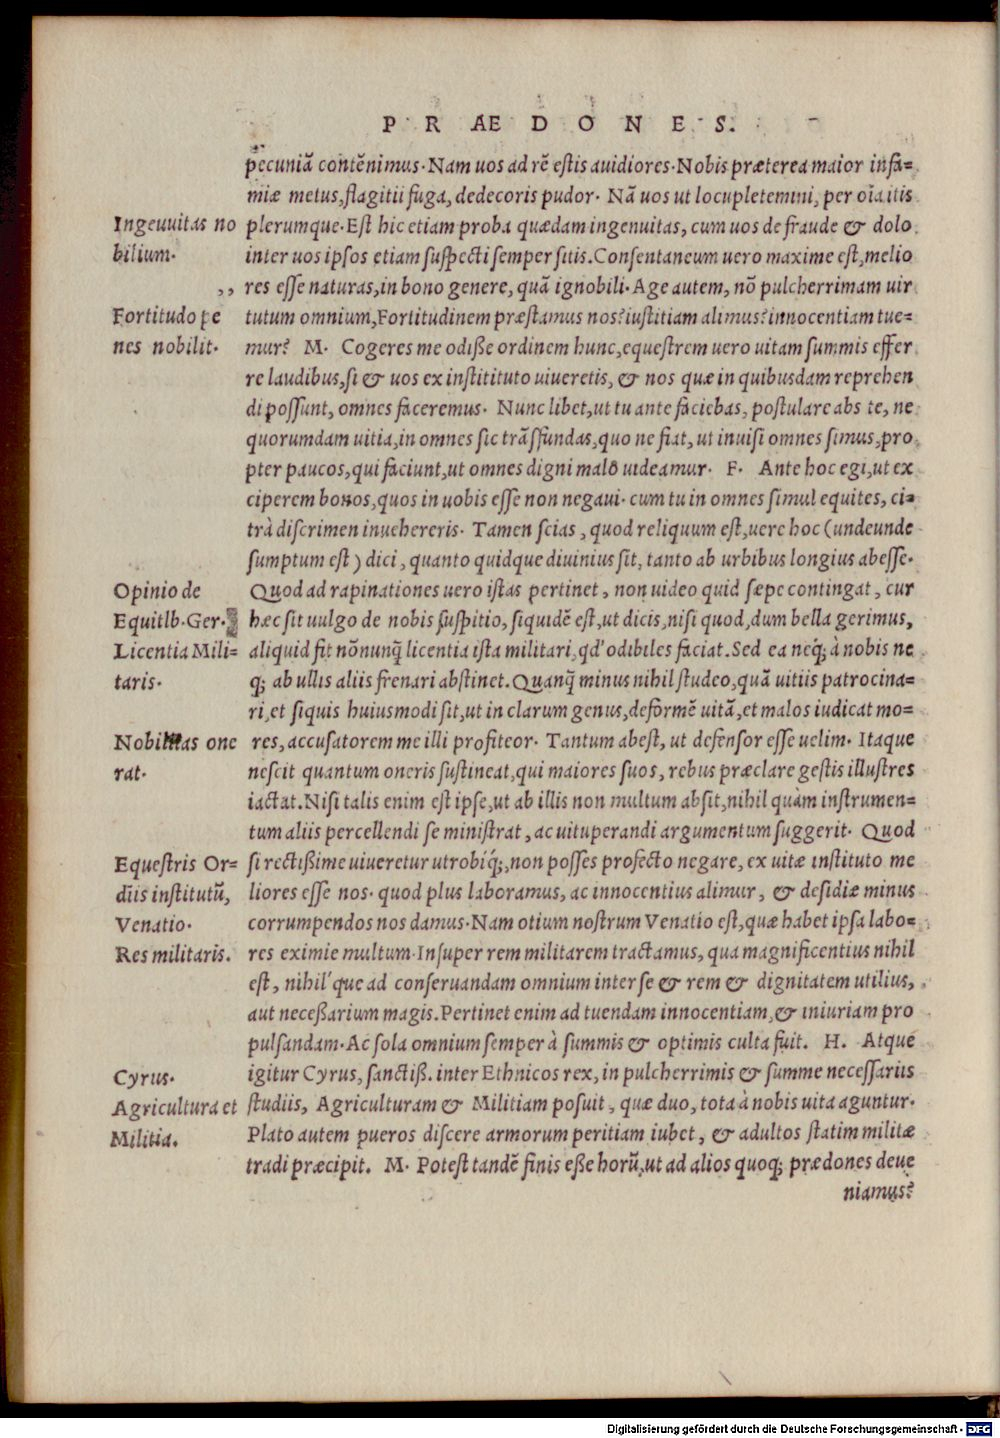 PRÆDONES.
pecuniã contẽnimus. Nam uos ad rẽ estis auidiores. Nobis præterea maior infa=
miæ metus, flagitii fuga, dedecoris pudor. Nã uos ut locupletemini, per oĩa itis
Ingeuuitas no
plerumque. Est hic etiam proba quædam ingenuitas, cum uos de fraude & dolo
bilium.
inter uos ipsos etiam suspecti semper sitis. Consentaneum uero maxime est, melio
,,
res esse naturas, in bono genere, quã ignobili. Age autem, nõ pulcherrimam uir
Fortitudo pe
tutum omnium, Fortitudinem præstamus nos? iustitiam alimus? innocentiam tue=
nes nobilit.
mur? M. Cogeres me odisse ordinem hunc, equestrem uero uitam summis effer
re laudibus, si & uos ex institituto uiueretis, & nos quæ in quibusdam reprehen
di possunt, omnes faceremus. Nunc libet, ut tu ante faciebas, postulare abs te, ne
quorumdam uitia, in omnes sic trãsfundas, quo ne fiat, ut inuisi omnes simus, pro
pter paucos, qui faciunt, ut omnes digni malo uideamur. F. Ante hoc egi, ut ex
ciperem bonos, quos in uobis esse non negaui. cum tu in omnes simul equites, ci=
trà discrimen inuehereris. Tamen scias, quod reliquum est, uere hoc (undeunde
sumptum est) dici, quanto quidque diuinius sit, tanto ab urbibus longius abesse.
Opinio de
Quod ad rapinationes uero istas pertinet, non uideo quid sæpe contingat, cur
Equitlb. Ger.
hæc sit uulgo de nobis suspitio, siquidẽ est, ut dicis, nisi quod, dum bella gerimus,
Licentia Mili=
aliquid fit nõnunq̃ licentia ista militari, qd' odibiles faciat. Sed ea neq; à nobis ne
taris.
q; ab ullis aliis frenari abstinet. Quanq̃ minus nihil studeo, quã uitiis patrocina=
ri, et siquis huiusmodi sit, ut in clarum genus, deformẽ uitã, et malos iudicat mo=
Nobilitas one
res, accusatorem me illi profiteor. Tantum abest, ut defensor esse uelim. Itaque
rat.
nescit quantum oneris sustineat, qui maiores suos, rebus præclare gestis illustres
iactat. Nisi talis enim est ipse, ut ab illis non multum absit, nihil quàm instrumen=
tum aliis percellendi se ministrat, ac uituperandi argumentum suggerit. Quod
Equestris Or=
si rectissime uiueretur utrobiq́;, non posses profecto negare, ex uitæ instituto me
diis institutũ,
liores esse nos. quod plus laboramus, ac innocentius alimur, & desidiæ minus
Venatio.
corrumpendos nos damus. Nam otium nostrum Venatio est, quæ habet ipsa labo=
Res militaris.
res eximie multum. Insuper rem militarem tractamus, qua magnificentius nihil
est, nihil'que ad conseruandam omnium inter se & rem & dignitatem utilius,
aut necessarium magis. Pertinet enim ad tuendam innocentiam, & iniuriam pro
pulsandam. Ac sola omnium semper à summis & optimis culta fuit. H. Atque
Cyrus.
igitur Cyrus, sanctiss. inter Ethnicos rex, in pulcherrimis & summe necessariis
Agricultura et
studiis, Agriculturam & Militiam posuit, quæ duo, tota à nobis uita aguntur.
Militia.
Plato autem pueros discere armorum peritiam iubet, & adultos statim militæ
tradi præcipit. M. Potest tandẽ finis esse horũ, ut ad alios quoq; prædones deue
niamus?
Digitalisierung gefördert durch die Deutsche Forschungsgemeinschaft - DFG